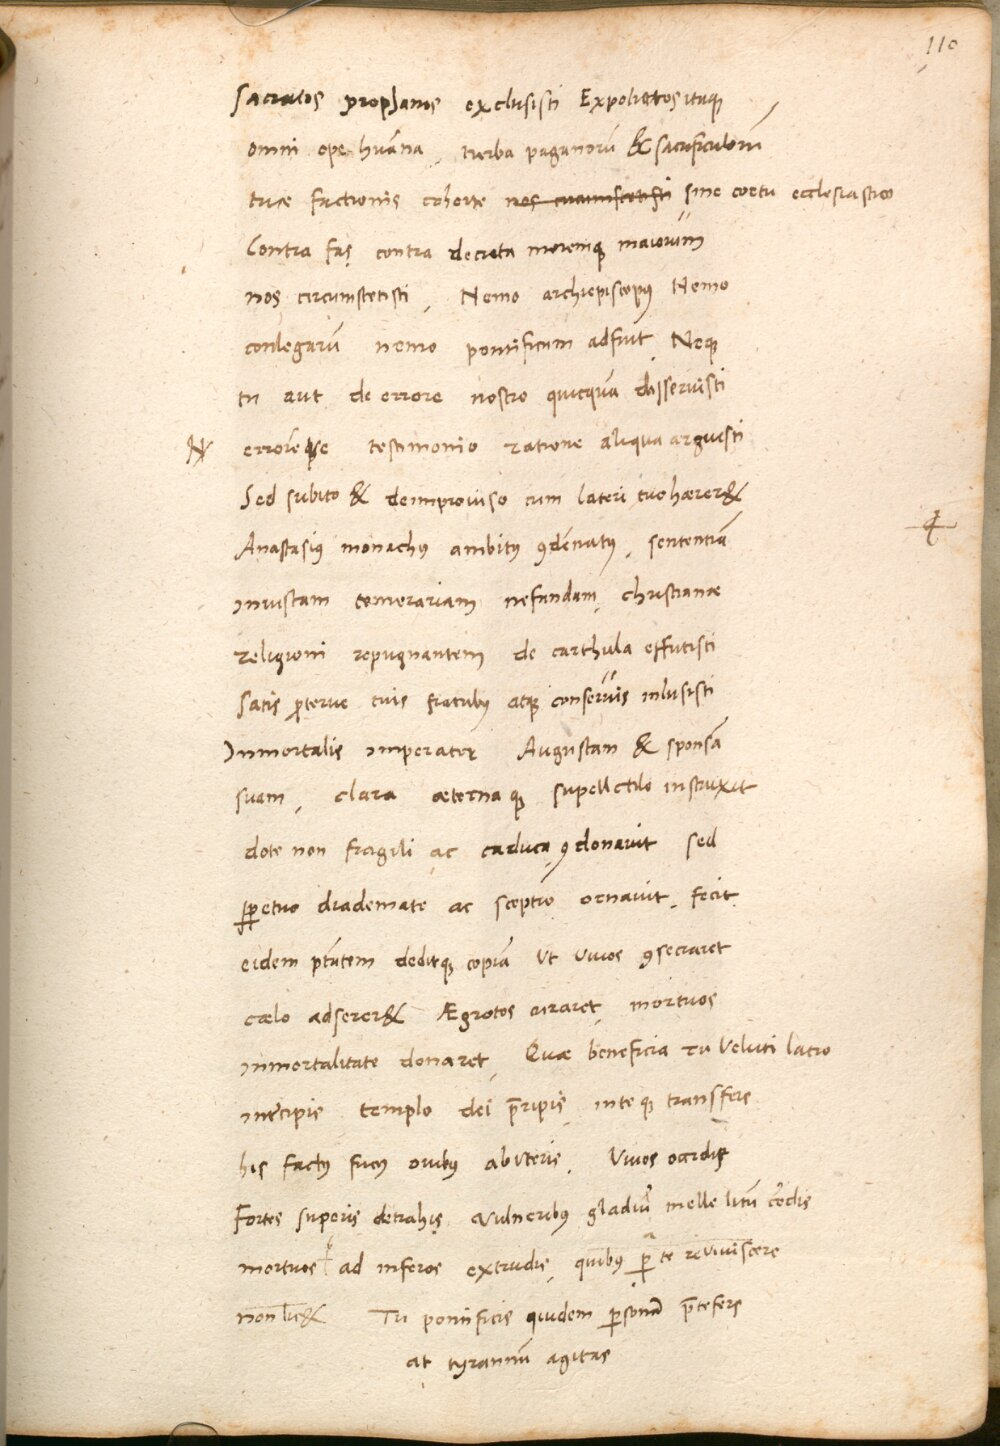 110
sacratos prophanos exclusisti Expoliatos itaq̨
omni ope huāna, turba paganorū & sacrificulorū
tuæ factionis cohorte nos circumstetisti sine coetu ecclesiastico
Contra fas contra decreta moremq̨ maiorum
nos circumstetisti, Nemo archiepiscopꝰ Nemo
conlegarū nemo pontificum adfuit, Neq̨
tu aut de errore nostro quicquā disseruisti
errorēq̨ue testimonio ratione aliqua arguisti
Sed subito & deimprouiso cum lateri tuo hærer&
Anastasiꝰ monachꝰ ambitꝰ ꝯdēnatꝰ, sententiā
iniustam temerariam nefandam, christianæ
religioni repugnantem de carthula effutisti
Satis ꝓterue tuis fratribꝰ atq̨ conseruis inlusisti
Inmortalis imperator Augustam & sponsā
suam, clara æternaq̨ supellectile instruxit
dote non fragili ac caduca ꝯdonauit sed
ꝑpetuo diademate ac sceptro ornauit, fecit
eidem ptātem deditq̨ copiā Ut viuos ꝯsecraret
cælo adserer& Ægrotos curaret, mortuos
inmortalitate donaret, Quæ beneficia tu veluti latro
intercipis templo dei p̄ripis inteq̨ transfers
his factꝰ fucꝰ ouibꝰ abuteris, Viuos occidis
Fortes superis detrahis, vulneribꝰ gladiū melle litū cōdis
mortuos ad inferos extrudis, quibꝰ ꝑ te reviuiscere
non lic& Tu pontificis quidem ꝑsonā p̄tefers
at tyrannū agitas